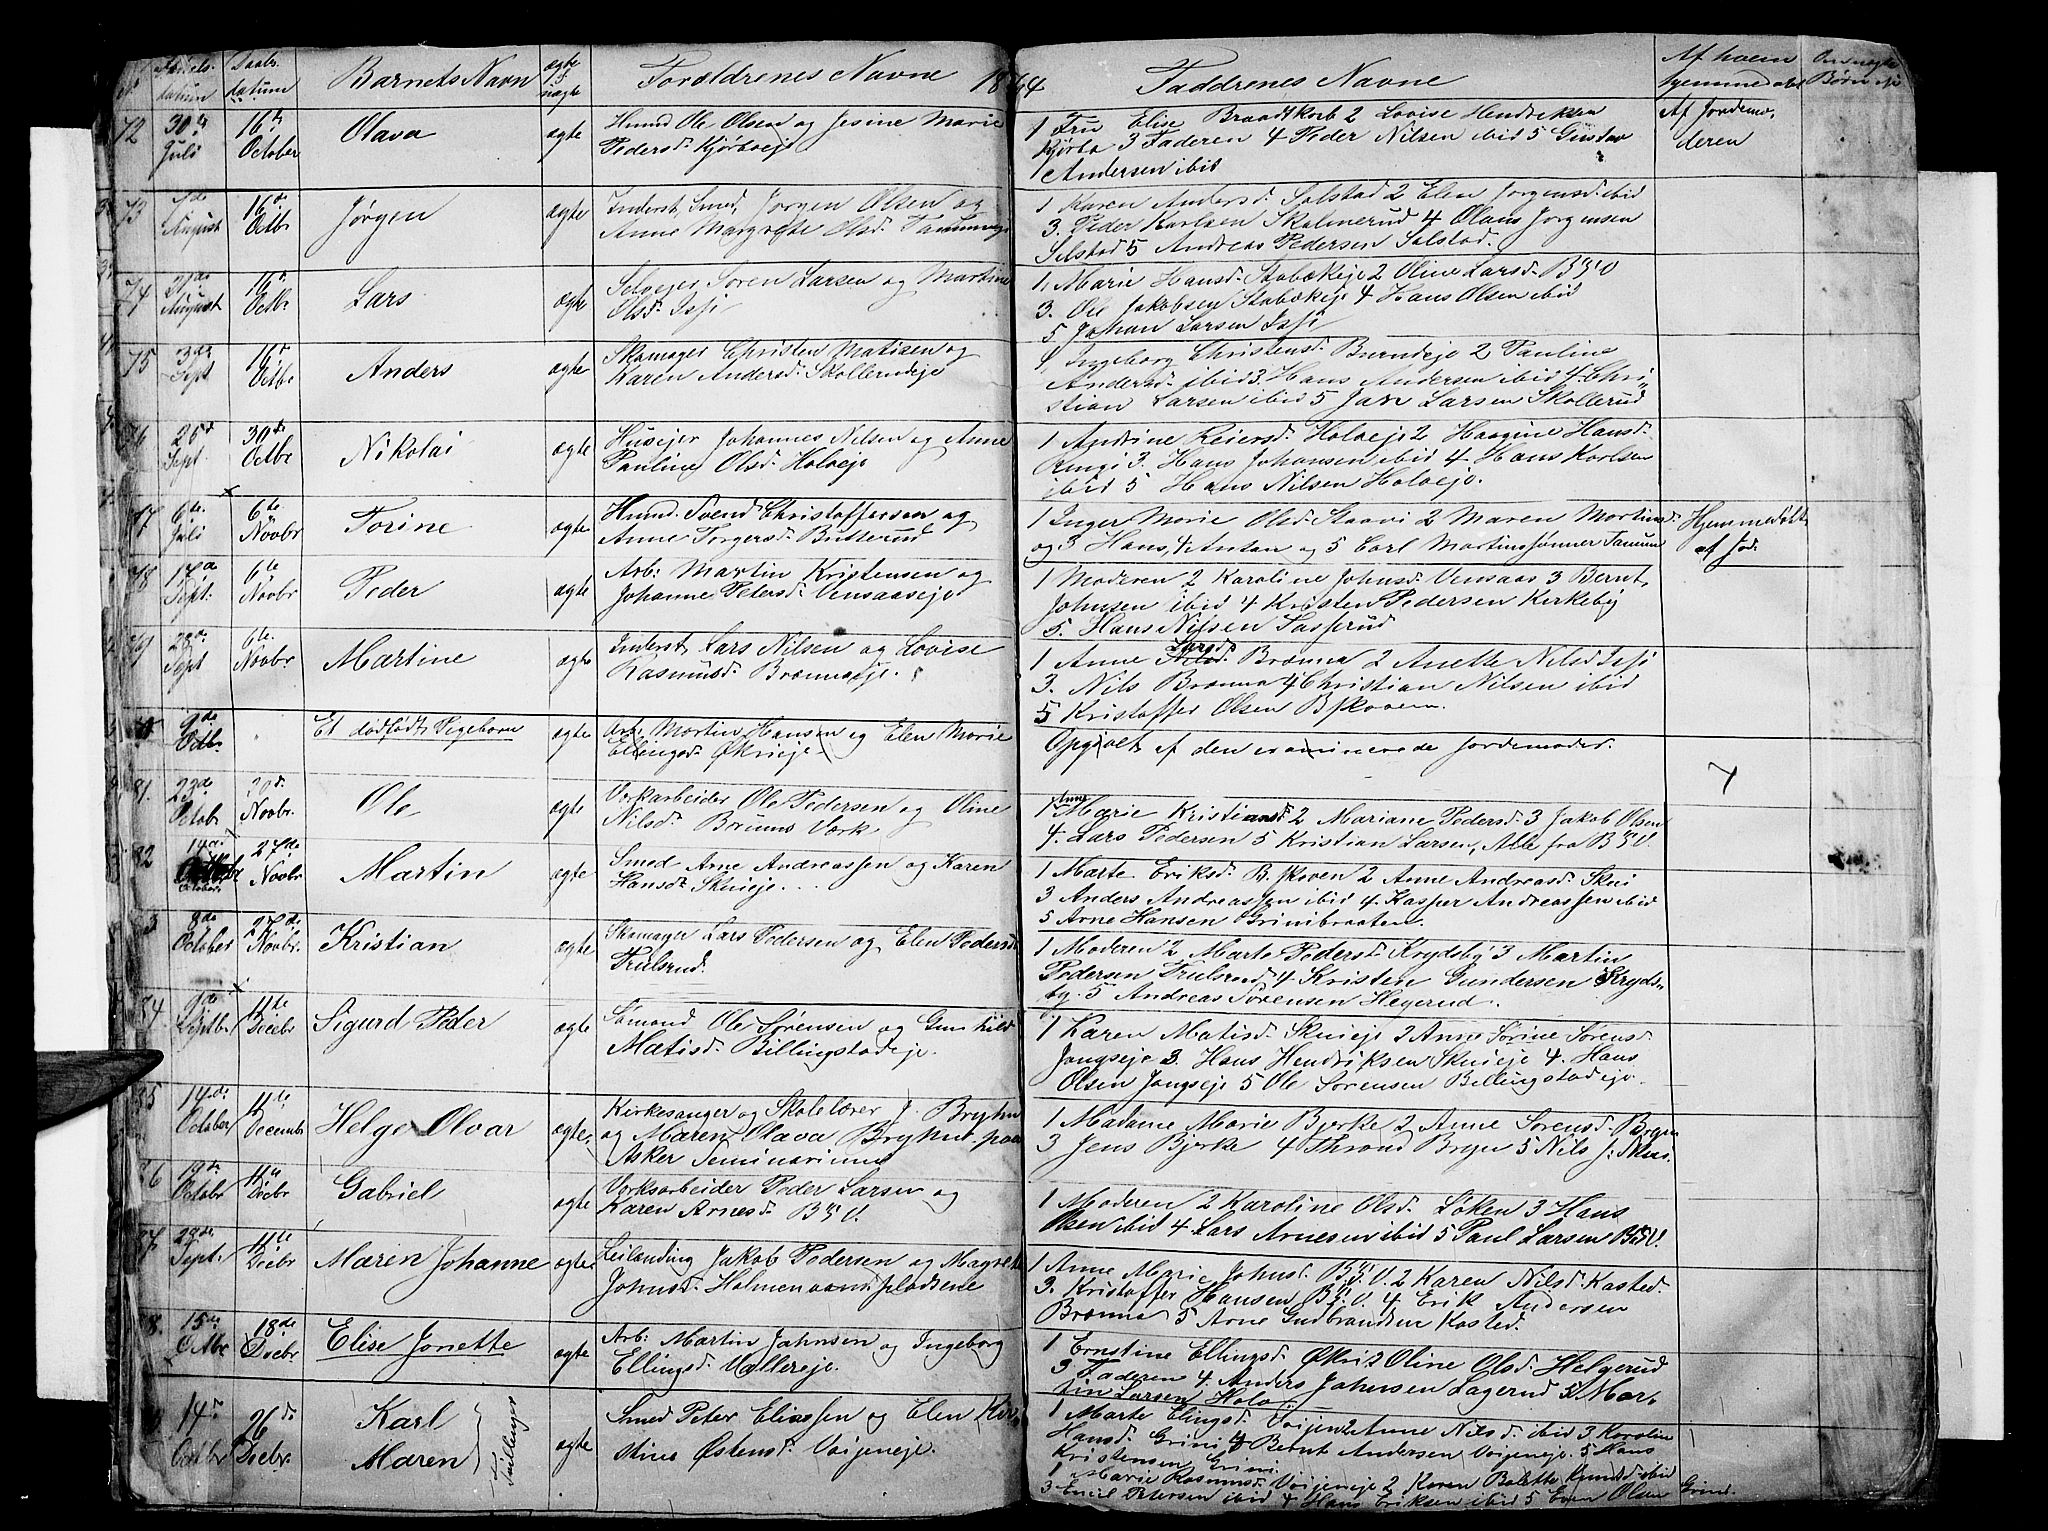 Barnets Navn Forældrenes Navne 1864 Faddrenes Navne Af hvem
datum datum ægte uægte hjemmedøbt Børn
72 30te Juli 16de October Olava ægte Hmnd Ole Olsen og Jesine Marie
Pedersd. Kjørboeje
1 Fru Elise Brandt Kjørb 2 Lovise Hendriksen
Kjørbo 3 Faderen 4 Peder Nilsen ibid 5 Gustav
Andersen ibid
Af Jordemo,
deren
73 August 16de Octbr Jørgen ægte Inderst, Smed, Jørgen Olsen og
Anne Margrethe Olsd.
1 Karen Andersd. Solstad 2 Elen Jørgensd. ibid
3. Peder Karlsen Skalmerud 4 Olaus Jørgensen
Solstad 5 Andreas Pedersen Solstad.
74 21de August 16de Octbr Lars ægte Selvejer Søren Larsen og Martine
Olsd. Isji
1. Marie Hansd. Stabækeje 2 Oline Larsd. B.V
3. Ole Jakobsen Stabækeje 4 Hans Olsen ibid
5 Johan Larsen Isji
75 3de Sept 16de Octbr Anders ægte Skomager Christen Matisen og
Karen Andersd. Skollerudeje
1, Ingeborg Christensd. Burudeje 2 Pauline
Andersd. ibid 3. Hans Andersen ibid 4. Chri,,
stian Larsen ibid 5 Jan Larsen Skollerud
76 25de Sept. 30de Octbr Nikolai ægte Husejer Johannes Nilsen og Anne
Pauline Olsd. Holoeje
1 Andrine Reiersd. Holoeje 2 Haagine Hansd.
Ringi 3. Hans Johansen ibid 4 Hans Karlsen
ibid 5 Hans Nilsen Holoeje.
77 6te Juli 6te Novbr Torine ægte Hmnd. Svend Christoffersen og
Anne Torgersd. Butterud
1 Inger Marie Olsd. Staavi 2 Maren Martinsd.
og 3 Hans, 4 Antan og 5 Carl Martinssønner Tanum
Hjemmedøbt
af Jod.
78 17de Sept. 6te Novbr Peder ægte Arb: Martin Kristensen og
Johanne Petersd. Vensaaseje
1 Moderen 2 Karoline Johnsd. Vensaas 3 Bernt
Johnsen ibid 4 Kristen Pedersen Kirkeby
5. Hans Nilsen Sasserud
79 28de Sept 6te. Novbr. Martine ægte Inderst Lars Nilsen og Lovise
Rasmusd. Brænnaeje.
1 Anne Larsd. Brænna 2 Anette Nilsd Isji
3. Nils Brænna 4 Christian Nilsen ibid
5 Kristoffer Olsen B.skoven.
80 9de Octbr. Et dødfødt Pigebarn ægte Arb. Martin Hansen og Elen Marie
Ellingsd. Økrieje
Opgivet af den examinerede Jordemoder.
81. 23de Octobr 30de Novbr. Ole ægte Værkarbeider Ole Pedersen og Oline
Nilsd. Bærums Værk
1 Anne Marie Kristiansd. 2 Mariane Pedersd. 3 Jakob Olsen
4. Lars Pedersen 5 Kristian Larsen, Alle fra B.V.
82 14de October 27de Novbr. Martin ægte Smed Arne Andreassen og Karen
Hansd. Skuieje...
1 Marte Eriksd. B.skoven 2 Anne Andreasd. Skui
3 Anders Andreassen ibid 4 Kasper Andreassen ibid
5 Arne Hansen Grinibraaten.
83 8de October 27de Novbr. Kristian ægte Skomager Lars Pedersen og Elen Pedersd.
Trulsrud.
1 Moderen 2 Marte Pedersd. Krydsby 3 Martin
Pedersen Trulsrud 4 Kristen Gundersen Kryds,,
by. 5 Andreas Sørensen Hegerud.
84 Septbr. 11te Decbr Sigurd Peder ægte Sømand Ole Sørensen og Gunhild
Matisd. Billingstadeje.
1 Karen Matisd. Skuieje 2 Anne Sørine Sørensd.
Jongseje 3. Hans Hendriksen Skuieje 4. Hans
Olsen Jongseje 5 Ole Sørensen Billingstadeje.
85 14de October 11te Decembr Helge Olvar ægte Kirkesanger og Skolelærer J. Bryhn
og Maren Olava Bryhn, paa
Asker Seminarium
1 Madame Marie Bjerke 2 Anne Sørensd. Bryn
3 Jens Bjerke 4 Thrond Bryn 5 Nils J: Skui
86 19de Octobr 11te Decbr Gabriel ægte Værksarbeider Peder Larsen og
Karen Arnesd. B.V.
1 Moderen 2 Karoline Olsd. Løken 3 Hans
Olsen ibid 4 Lars Arnesen ibid 5 Paul Larsen B.V.
87 29de Sept. 11te Decbr Maren Johanne ægte Leilænding Jakob Pedersen og Magrete
Johnsd. Holmen
1 Anne Marie Johnsd. B.V. 2 Karen Nilsd. Kasted.
3. Kristoffer Hansen B.V. 4. Erik Andersen
Brænna 5 Arne Gudbrandsen Kasted.
88. 15de Octbr 18de Decbr Elise Jonette ægte Arb: Martin Johnsen og Ingeborg
Ellingsd. Vællereje.
1 Ernstine Ellingsd. Økri 2 Oline Olsd. Helgerud
3 Faderen 4. Anders Johnsen Lagerud 5. Mar,
tin Larsen Holo
14de Octobr 26de Decbr. Karl
Maren Tvillinger ægte Smed Peter Eliassen og Elen Kir,
stine Østensd. Voijeneje.
1 Marte Elingsd. Voijen 2 Anne Nilsd. ibid 3 Karoline
Hansd. Grini 4 Bernt Andersen Voijeneje. 5 Hans
Kristensen Grini
1 Marie Rasmusd. Voijeneje 2 Karen Bolette Knudsd. ibid
3 Emil Petersen ibid 4 Hans Eriksen ibid 5 Even Olsen Grini.